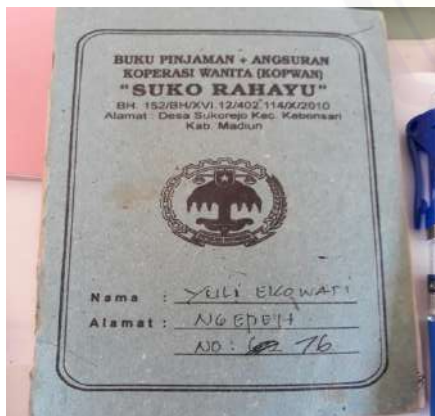 BUKU PINJAMAN + ANGSURAN
KOPERASI WANITA (KOPWAN)
"SUKO RAHAYU"
BH. 152/BH/XVI.12/402.114/X/2010
Alamat : Desa Sukorejo Kec. Kebonsari
Kab. Madiun
Nama : YULI EKOWATI
Alamat : NGEPEH
NO : 76